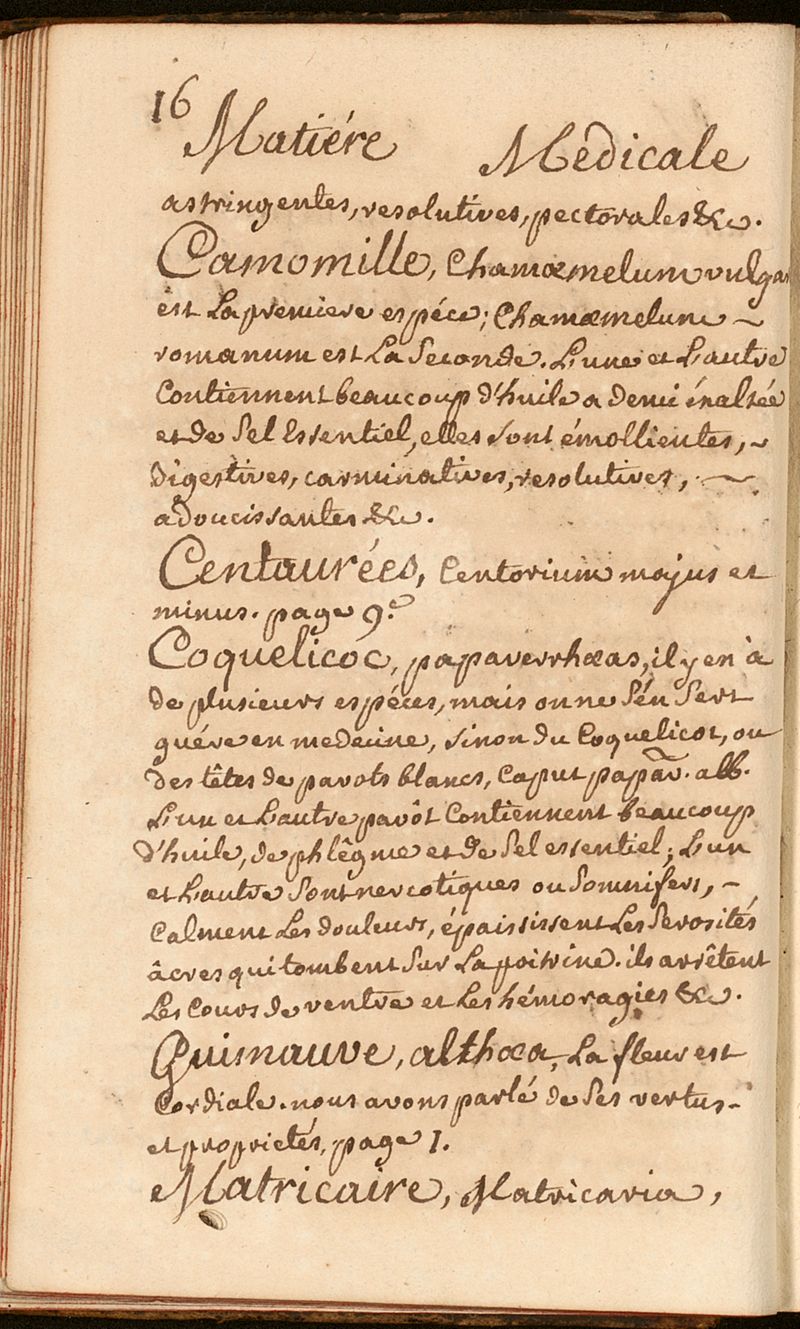 16
Matiére Medicale
astringentes, resolutives, pectorales &c.
Camomille, Chamæmelum vulgar
est La premiere espéce; Chamæmelum ~
romanum est La Seconde. L'une et L'autre
Contiennent beaucoup d'huile a demi éxaltée
et de Sel Essentiel, elles sont émollientes, ~
digestives, carminatives, resolutives, ~
adoucissantes &c.
Centaurées, Centorium majus et
minus. page 9.e
Coquelicoc, papaver rhœas, il y en à
de plusieurs espéces, mais on ne S'én Sert
guére en medecine, sinon du Coquelicot, ou
des têtes de pavots blancs, Caput papāv. alb.
L'un et L'autre pavôt Contiennent beaucoup
d'huile, de phlêgme et de Sel essentiel; L'un
et L'autre Sont nercotiques ou Somnifers, ~
Calment Les douleurs, épaississent Les Serosités
âcres qui tombent Sur La poitrine. ils arrêtent
Les Cours de ventre et Les hémoragies &c.
Guimauve, althœa, La fleur est
Cordiale. nous avons parlé de Ses vertus ~
et proprietés, page 1.
Matricaire, Matricaria,